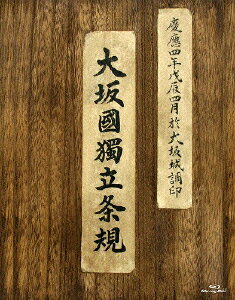 慶應四年戊辰四月於大坂城調印
大坂國獨立条規